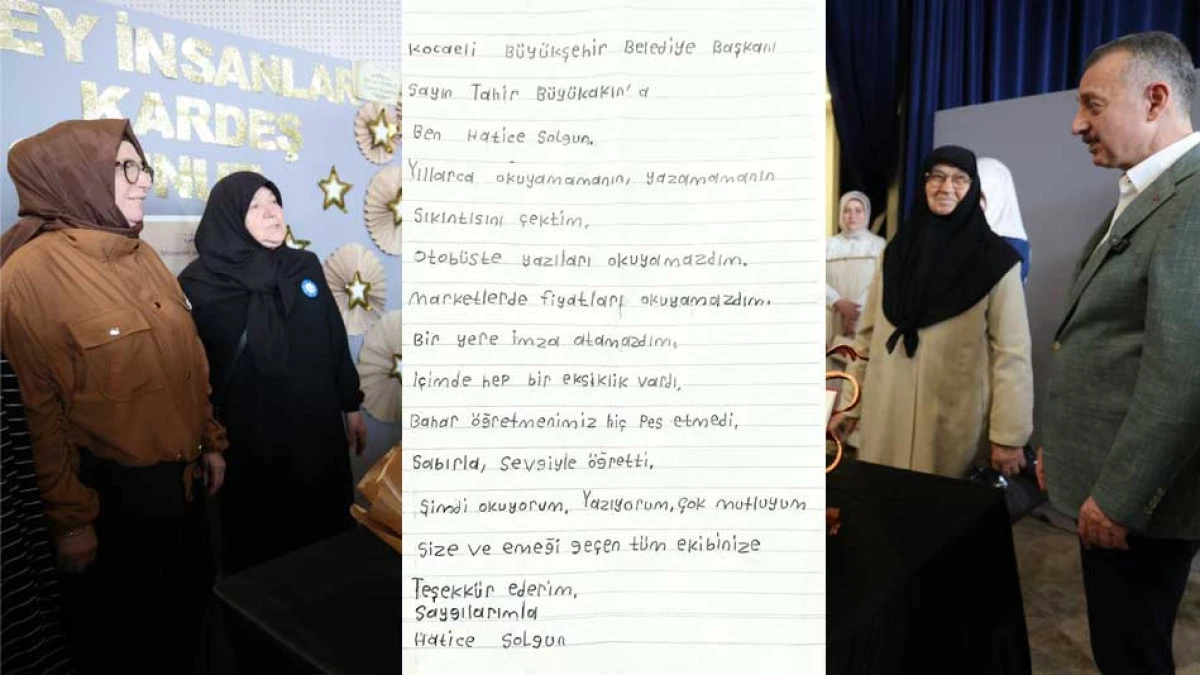 EY İNSANLAR
KARDEŞ
Kocaeli Büyükşehir Belediye Başkanı
Sayın Tahir Büyükakın'a
Ben Hatice Solgun.
Yıllarca okuyamamanın, yazamamanın
Sıkıntısını çektim,
Otobüste yazıları okuyamazdım.
Marketlerde fiyatları okuyamazdım.
Bir yere imza atamazdım.
İçimde hep bir eksiklik vardı,
Bahar öğretmenimiz hiç pes etmedi,
Sabırla, Sevgiyle öğretti.
Şimdi okuyorum, Yazıyorum, Çok mutluyum
Size ve emeği geçen tüm ekibinize
Teşekkür ederim,
Saygılarımla
Hatice Solgun